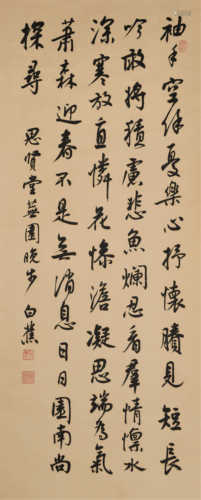 袖手空餘憂樂心抒懷賸見短長
吟敢將積慮悲魚爛忍看羣情懍水
深寒放直憐花慘澹凝思端為氣
蕭森迎春不是無消息日日園南尚
探尋 思賢堂蕪園晚步 白蕉